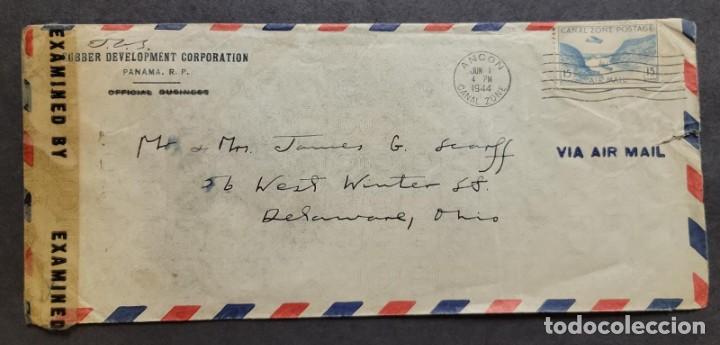 J.C.S.
RUBBER DEVELOPMENT CORPORATION
PANAMA, R. P.
OFFICIAL BUSINESS
ANCON
JUN 1
4 PM
1944
CANAL ZONE
CANAL ZONE POSTAGE
15 AIR MAIL 15
Mr & Mrs. James G. Scarff
56 West Winter St.
Delaware, Ohio
VIA AIR MAIL
EXAMINED BY
EXAMINED
todocoleccion
todocoleccion.net